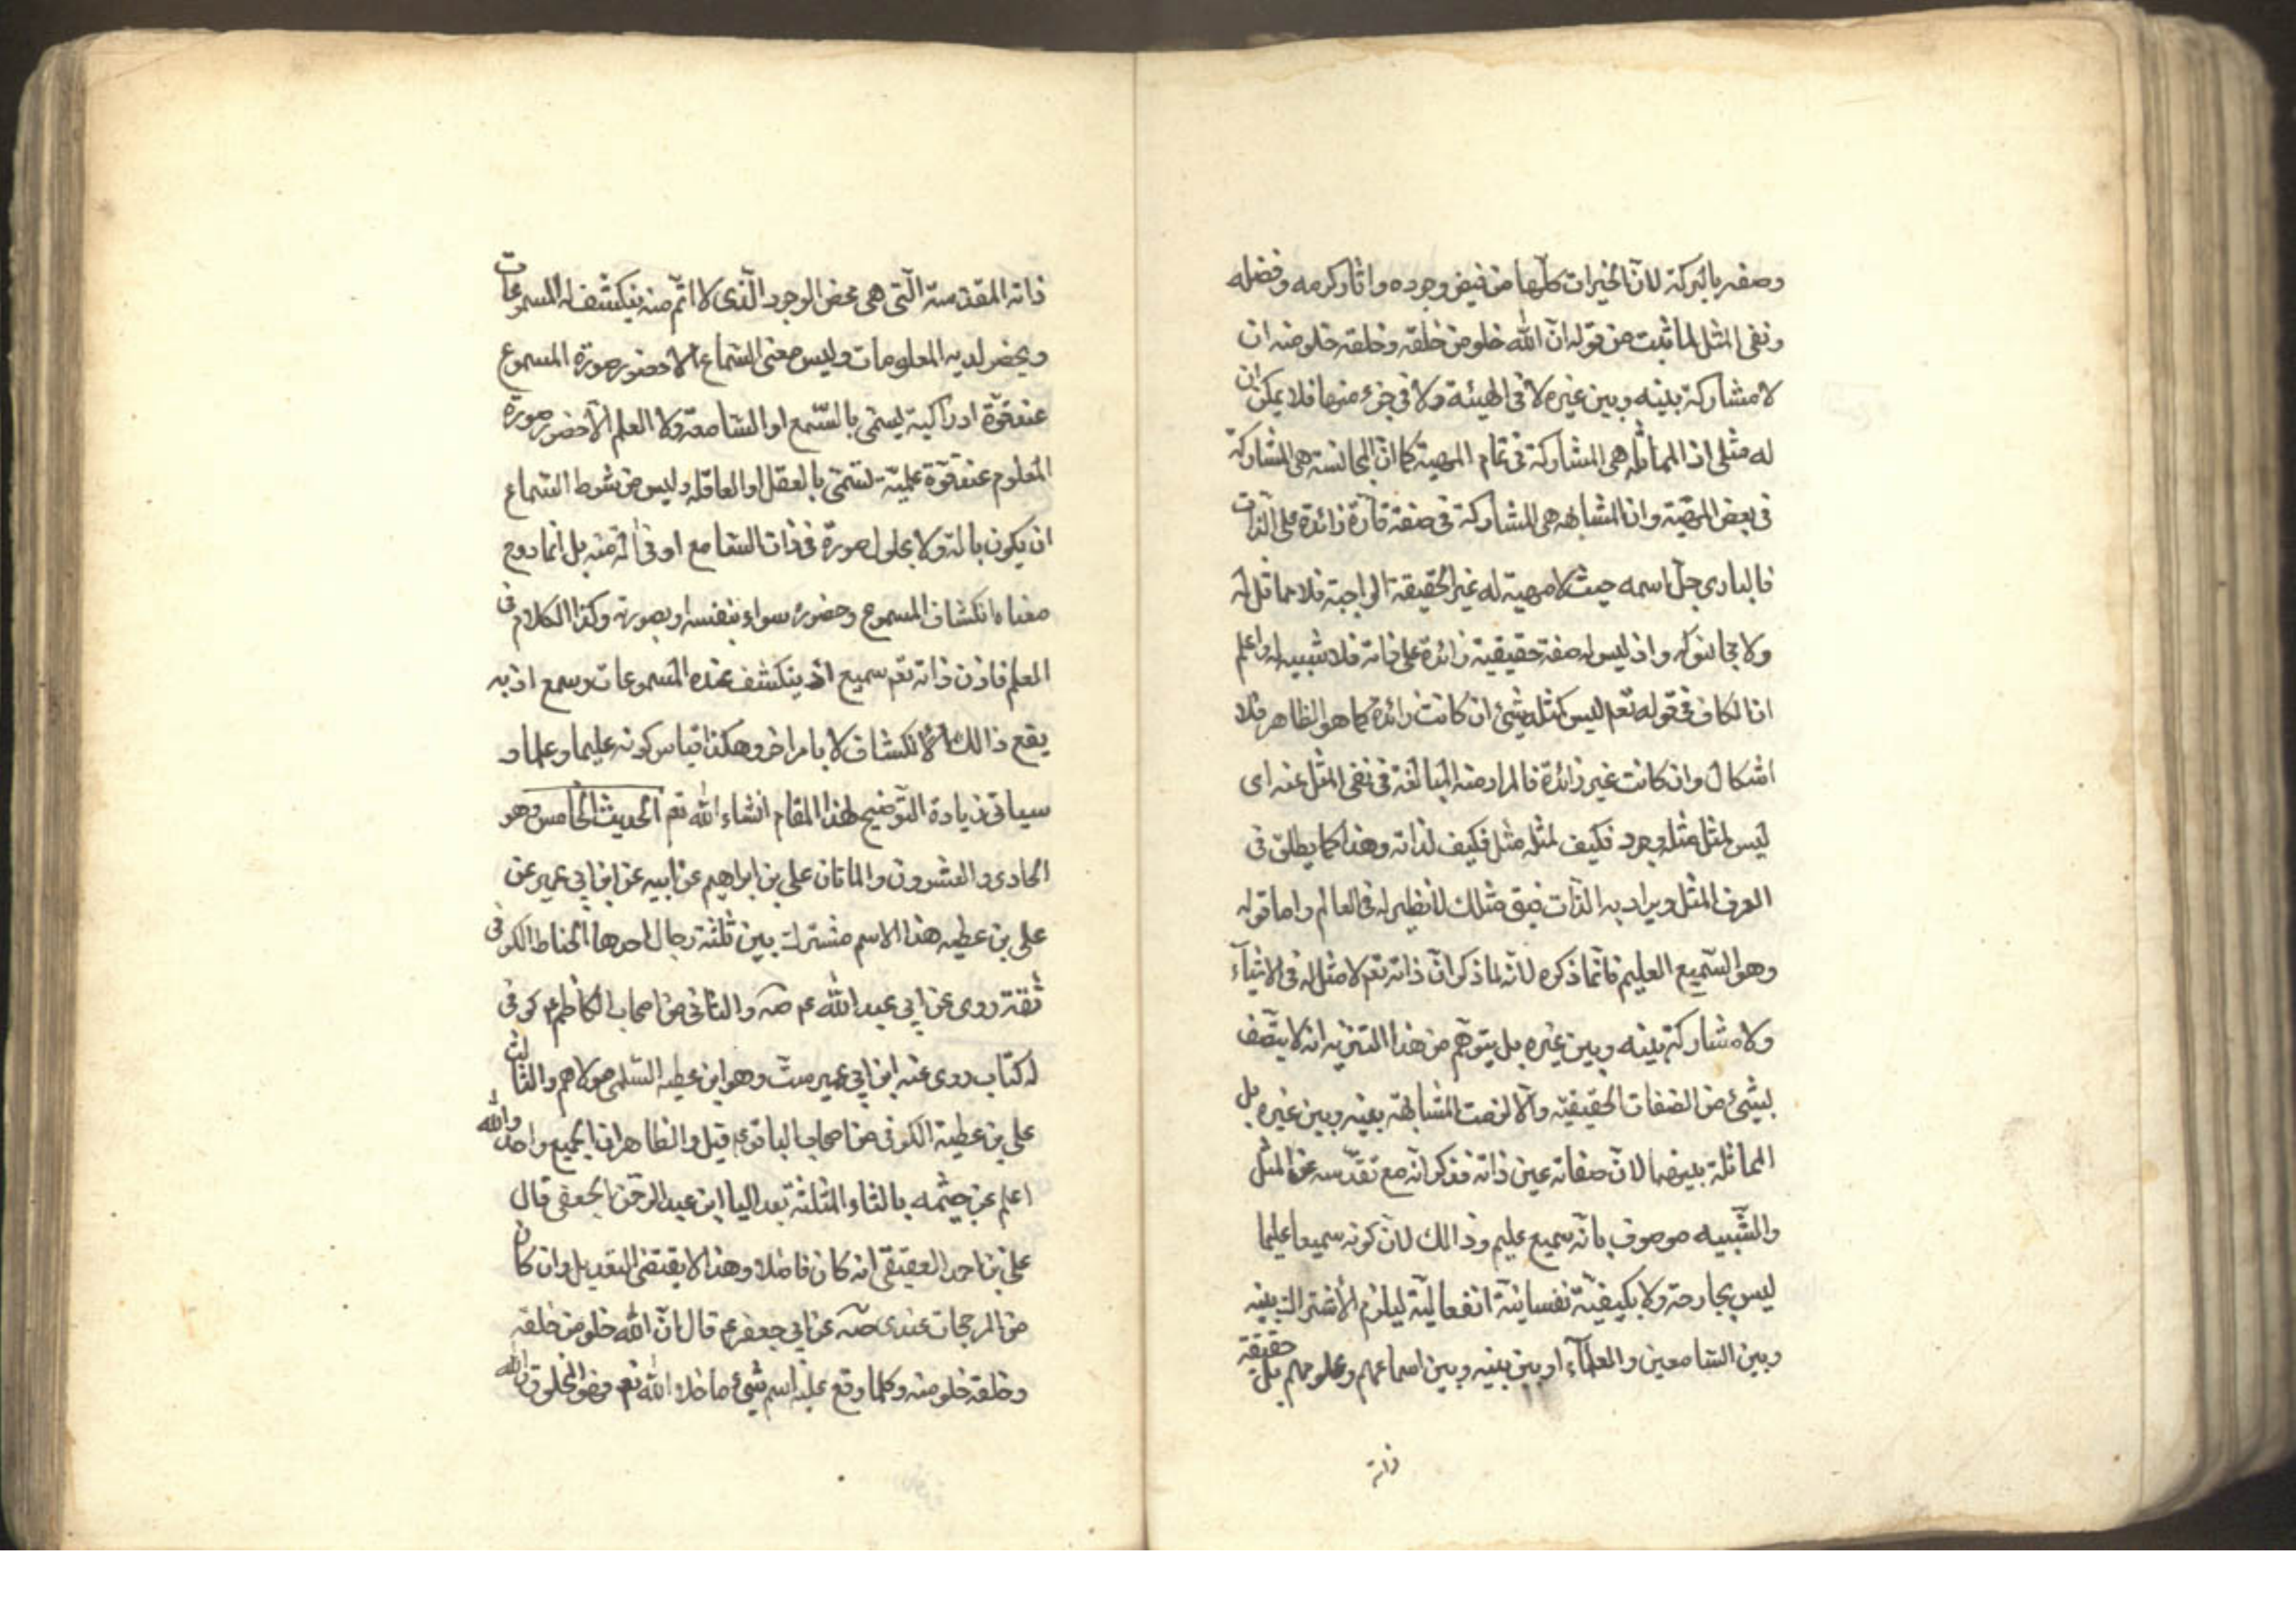 وصفه بالبركة لانّ الخيرات كلّها من فيض وجوده واثار كرمه وفضله
ونفى المثل لما ثبت من قوله انّ الله خلو من خلقه وخلقه خلو منه ان
لا مشاركة بينه وبين غيره لا فى المهيّة ولا فى جزء منها فلا يمكن ان
له مثل اذ المماثلة هى المشاركة فى تمام المهية كما انّ المجانسة هى المشاركة
فى بعض المهيّة وان المشابهه هى المشاركة فى صفة قارّة زائدة على الذّات
فالبارى جلّ اسمه حيث لا مهية له غير الحقيقة الواجبة فلا مماثل له
ولا مجانس له واذ ليس له صفة حقيقية زائدة على ذاته فلا شبيه له واعلم
ان الكاف فى قوله تعم ليس كمثله شئ ان كانت زائدة كما هو الظاهر فلا
اشكال وان كانت غير زائدة فالمراد منه المبالغة فى نفى المثل عنه اى
ليس لمثل مثله وجود فكيف لمثله مثل فكيف لذاته وهذا كما يطلق فى
العرف المثل ويراد به الذّات فيق مثلك لا نظير له فى العالم واما قوله
وهو السّميع العليم فانّما ذكره لانّه لما ذكر انّ ذاته تعم لا مثل له فى الاشيآء
ولا مشاركة بينه وبين غيره بل يتوهّم من هذا التنزيه انه لا يتّصف
بشئ من الصّفات الحقيقيّة والّا لزمت المشابهة بينه وبين غيره بل
المماثلة بينهما لانّ صفاته عين ذاته فذكر انّه مع تقدّسه عن المثل
والشّبيه موصوف بانّه سميع عليم وذالك لانّ كونه سميعا عليما
ليس بجارحة ولا بكيفيّة نفسانيّة انفعاليّة ليلزم الاشتراك بينه
وبين السّامعين والعلمآء او بين بينه وبين اسماعهم وعلومهم بل حقيقة
ذاته
ذاته المقدسة الّتى هى محض الوجود الّذى لا اتمّ منه ينكشف له المسموعات
ويحضر لديه المعلومات وليس معنى السّماع الّا حضور صورة المسموع
عند قوّة ادراكية يسمّى بالسّمع او السّامعة ولا العلم الّا حضور صورة
المعلوم عند قوّة علميّة تسمّى بالعقل او العاقلة وليس من شرط السّماع
ان يكون بالة ولا بحلول صورة فى ذات السّامع او فى الة منه بل انما روح
معناه انكشاف المسموع وحضوره سواء بنفسه او بصورته وكذا الكلام فى
العلم فاذن ذاته تعم سميع اذ ينكشف عنده المسموعات وسمع اذ به
يقع ذالك الانكشاف لا بامر اخر وهكذا قياس كونه عليما وعلما و
سياتى زيادة التّوضيح لهذا المقام انشاء الله تعم الحديث الخامس وهو
الحادى والعشرون والماتان على بن ابراهيم عن ابيه عن ابن ابي عمير عن
على بن عطيه هذا الاسم مشترك بين ثلثة رجال احدها الحناط الكوفى
ثقة روى عن ابي عبد الله عم صه والثانى من اصحاب الكاظم عم كوفى
له كتاب روى عنه ابن ابي عمير ست وهو ابن عطيه السّلمى مولاهم والثالث
على بن عطية الكوفى من اصحاب الباقر عم قيل والظاهر ان الجميع واحد والله
اعلم عن خيثمه بالثاء المثلثة بعد اليا ابن عبد الرحمن الجعفى قال
على بن احمد العقيقى انه كان فاضلا وهذا لا يقتضى التعديل وان كان
من المرجحات عندى صه عن ابي جعفر عم قال انّ الله خلو من خلقه
وخلقه خلو منه وكلما وقع عليه اسم شئ ما خلا الله تعم فهو مخلوق والله